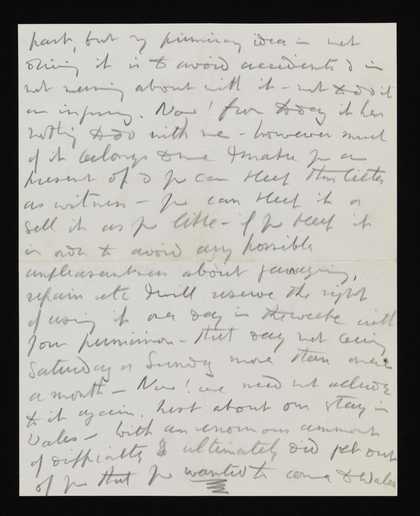 part, but my primary idea in not
driving it is to avoid accidents & in
not messing about with it – not to do it
an injury. Now! from today it has
nothing to do with me – however much
of it belongs to me I make you a
present of & you can keep this letter
as witness – you can keep it or
sell it as you like – if you keep it
in order to avoid any possible
unpleasantness about garaging,
repairs etc I will reserve the right
of using it one day in the week with
your permission – that day not being
Saturday or Sunday more than once
a month – Now! we need not allude
to it again. Next about our stay in
Wales – with an enormous amount
of difficulty I ultimately did get out
of you that you wanted to come to Wales